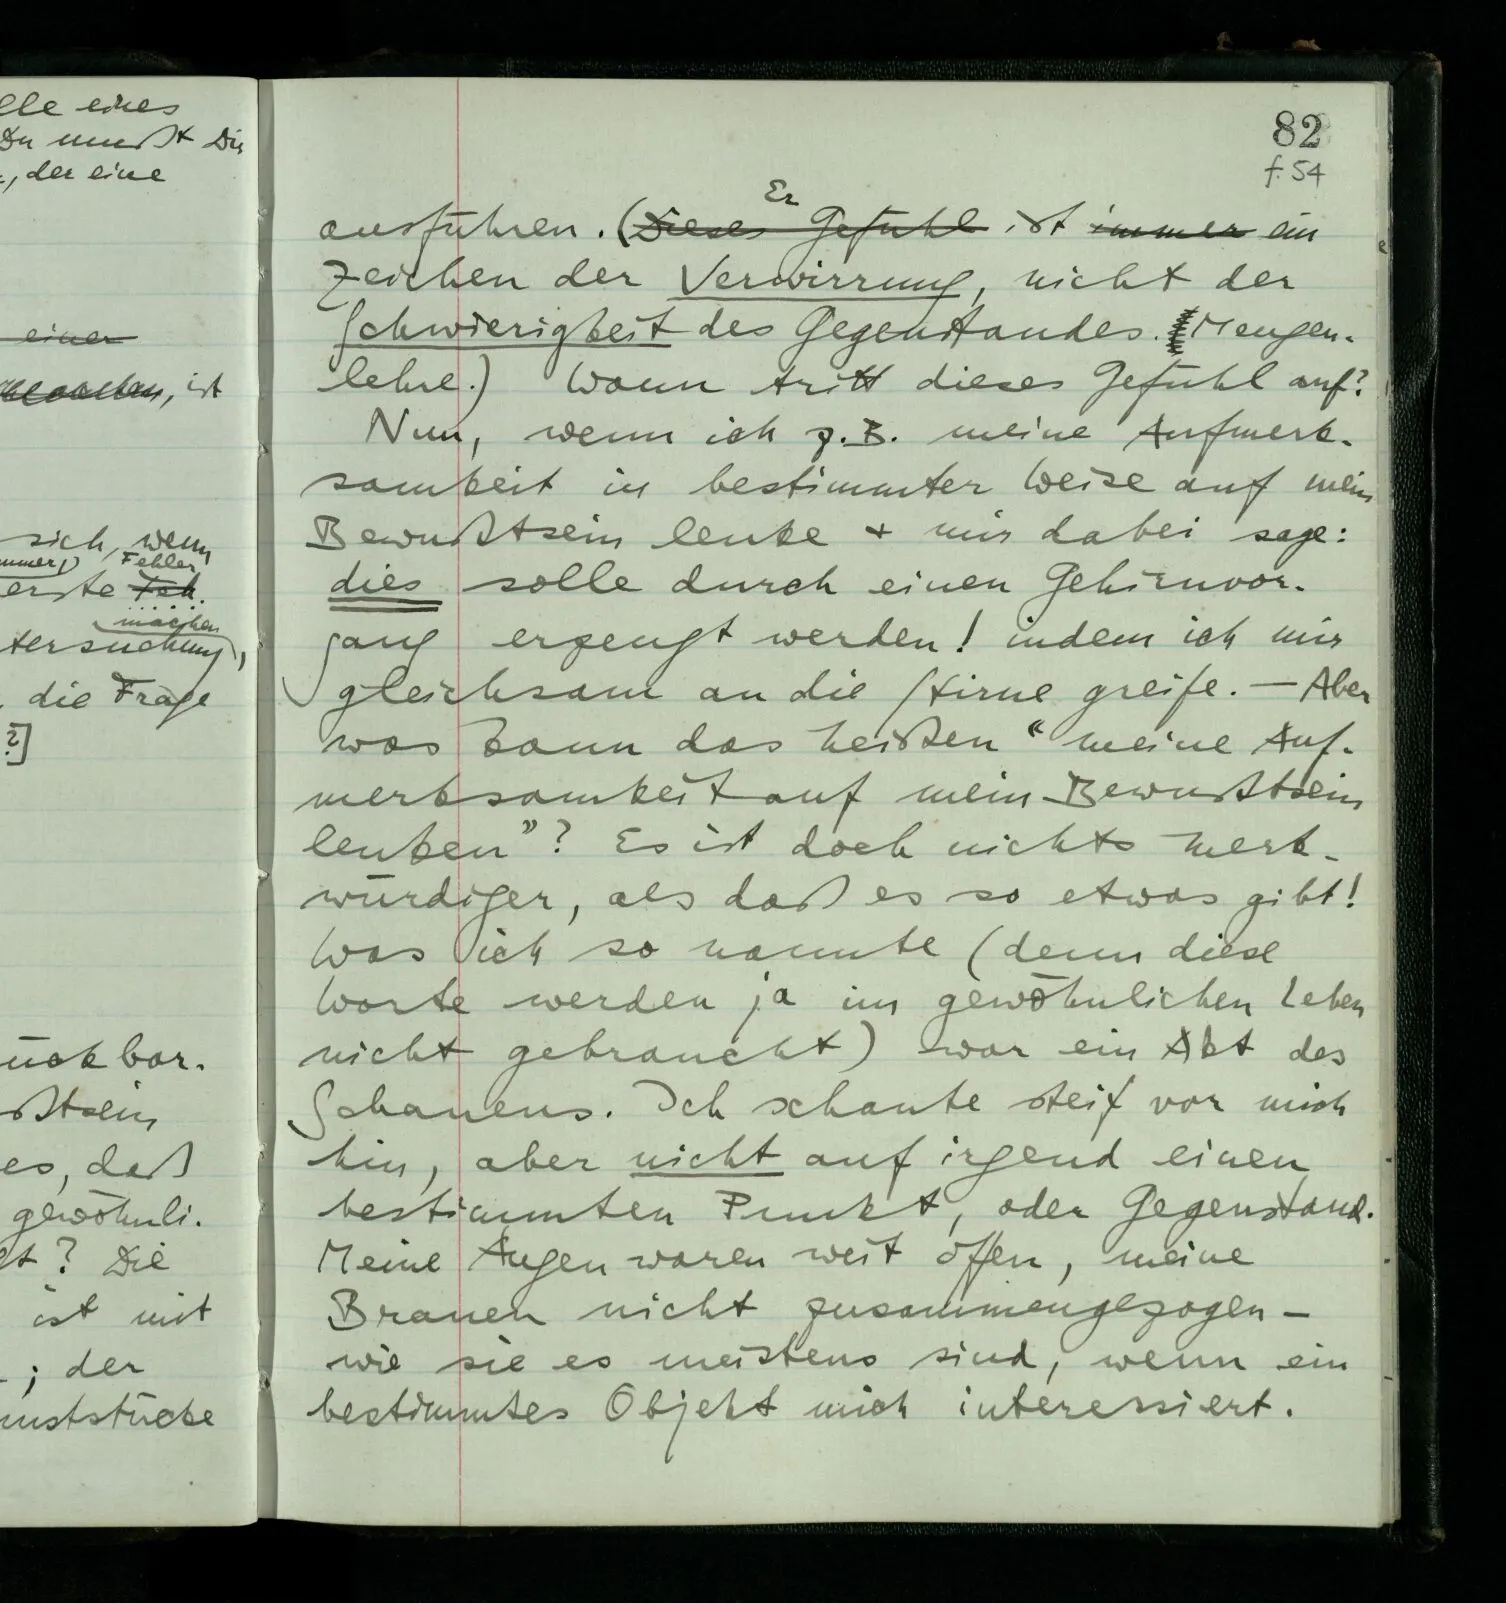 lle eines
Du mußt Dir
, der eine
einer
, ist
sich, wenn
Fehler
erste Feh.
machen
tersuchung,
die Frage
?]
ückbar.
ßtsein
es, daß
gewöhnli-
t? Die
ist mit
; der
unststücke
82
f. 54
Er
ausführen. (Dieses Gefühl ist immer ein
Zeichen der Verwirrung, nicht der
Schwierigkeit des Gegenstandes. Mengen-
lehre.) Wann tritt dieses Gefühl auf?
Nun, wenn ich z.B. meine Aufmerk-
samkeit in bestimmter Weise auf mein
Bewußtsein lenke + mir dabei sage:
dies solle durch einen Gehirnvor-
gang erzeugt werden! indem ich mir
gleichsam an die Stirne greife. — Aber
was kann das heißen “meine Auf-
merksamkeit auf mein Bewußtsein
lenken”? Es ist doch nichts merk-
würdiger, als daß es so etwas gibt!
Was ich so nannte (denn diese
Worte werden ja im gewöhnlichen Leben
nicht gebraucht) war ein Akt des
Schauens. Ich schaute steif vor mich
hin, aber nicht auf irgend einen
bestimmten Punkt, oder Gegenstand.
Meine Augen waren weit offen, meine
Brauen nicht zusammengezogen —
wie sie es meistens sind, wenn ein
bestimmtes Objekt mich interessiert.